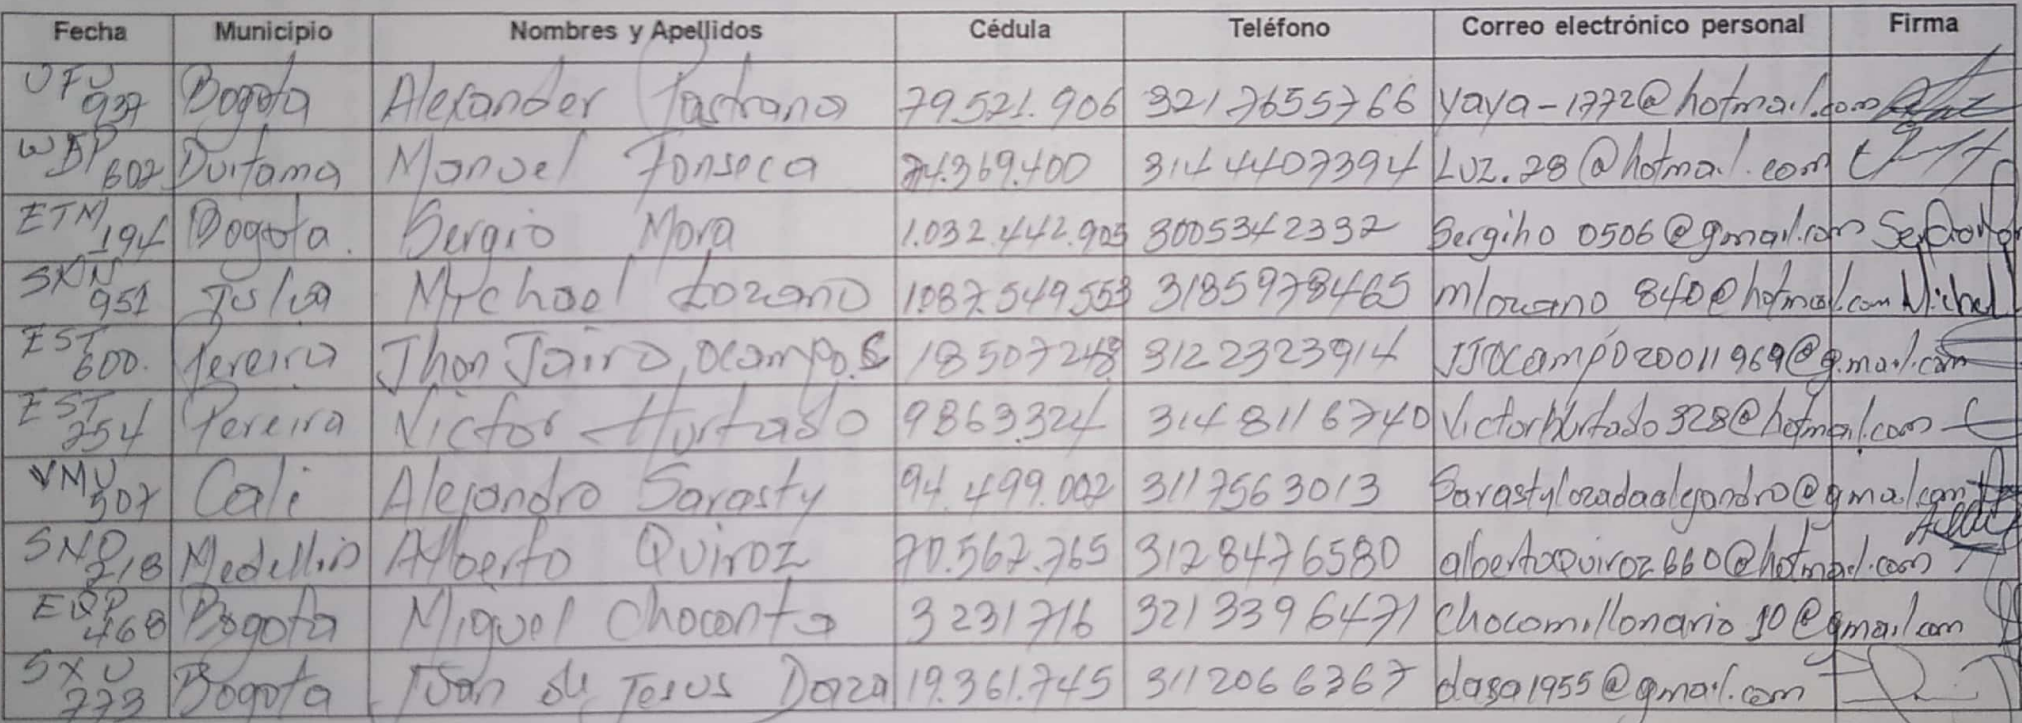 Fecha Municipio Nombres y Apellidos Cédula Teléfono Correo electrónico personal Firma
UFU 937 Bogota Alexander Pastrana 79.521.906 3217655766 yaya-1772@hotmail.com
WDP 602 Duitama Manuel Fonseca 74.369.400 3144407394 Luz.28@hotmail.com
ETM 194 Bogota. Sergio Mora 1.032.442.905 3005342332 Sergiho 0506@gmail.com
SKN 951 Mychael Lozano 1.087.549.553 3185978465 mlozano 840@hotmail.com Michel
EST 600. Pereira Jhon Jairo Ocampo.S 18507248 3122323914 JJocampo20011969@gmail.com
EST 254 Pereira Victor Hurtado 9863.324 3148116740 Victorhurtado328@hotmail.com
VMU 507 Cali Alejandro Sarasty 94.499.002 3117563013 Sarastylozadaalejandro@gmail.com
SNO 218 Medellin Alberto Quiroz 70.567.765 3128476580 albertoquiroz660@hotmail.com
EQP 468 Bogota Miguel Choconta 3231716 3213396471 Chocomillonario 10@gmail.com
SXU 773 Bogota Juan de Jesus Daza 19.361.745 3112066367 dasa1955@gmail.com